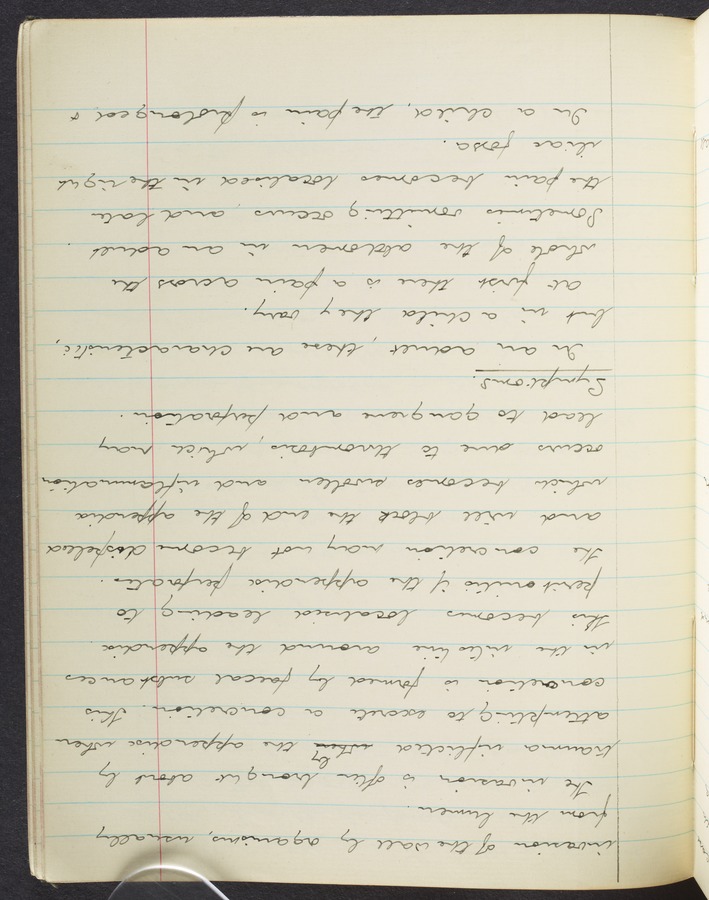 invasion of the wall by organisms, usually
from the lumen.
The invasion is often brought about by
trauma inflicted when by the appendix when
attempting to excrete a concretion. This
concretion is formed by faecal substances
in the intestine around the appendix
this becomes localised leading to
peritonitis if the appendix perforates.
The concretion may not become dispelled
and will block the end of the appendix
which becomes swollen and inflammation
occurs due to thrombosis, which may
lead to gangrene and perforation.
Symptoms.
In an adult, these are characteristic,
but in a child they vary.
At first there is a pain across the
whole of the abdomen in an adult.
Sometimes vomiting occurs and later
the pain becomes localised in the right
iliac fossa.
In a child, the pain is prolonged &